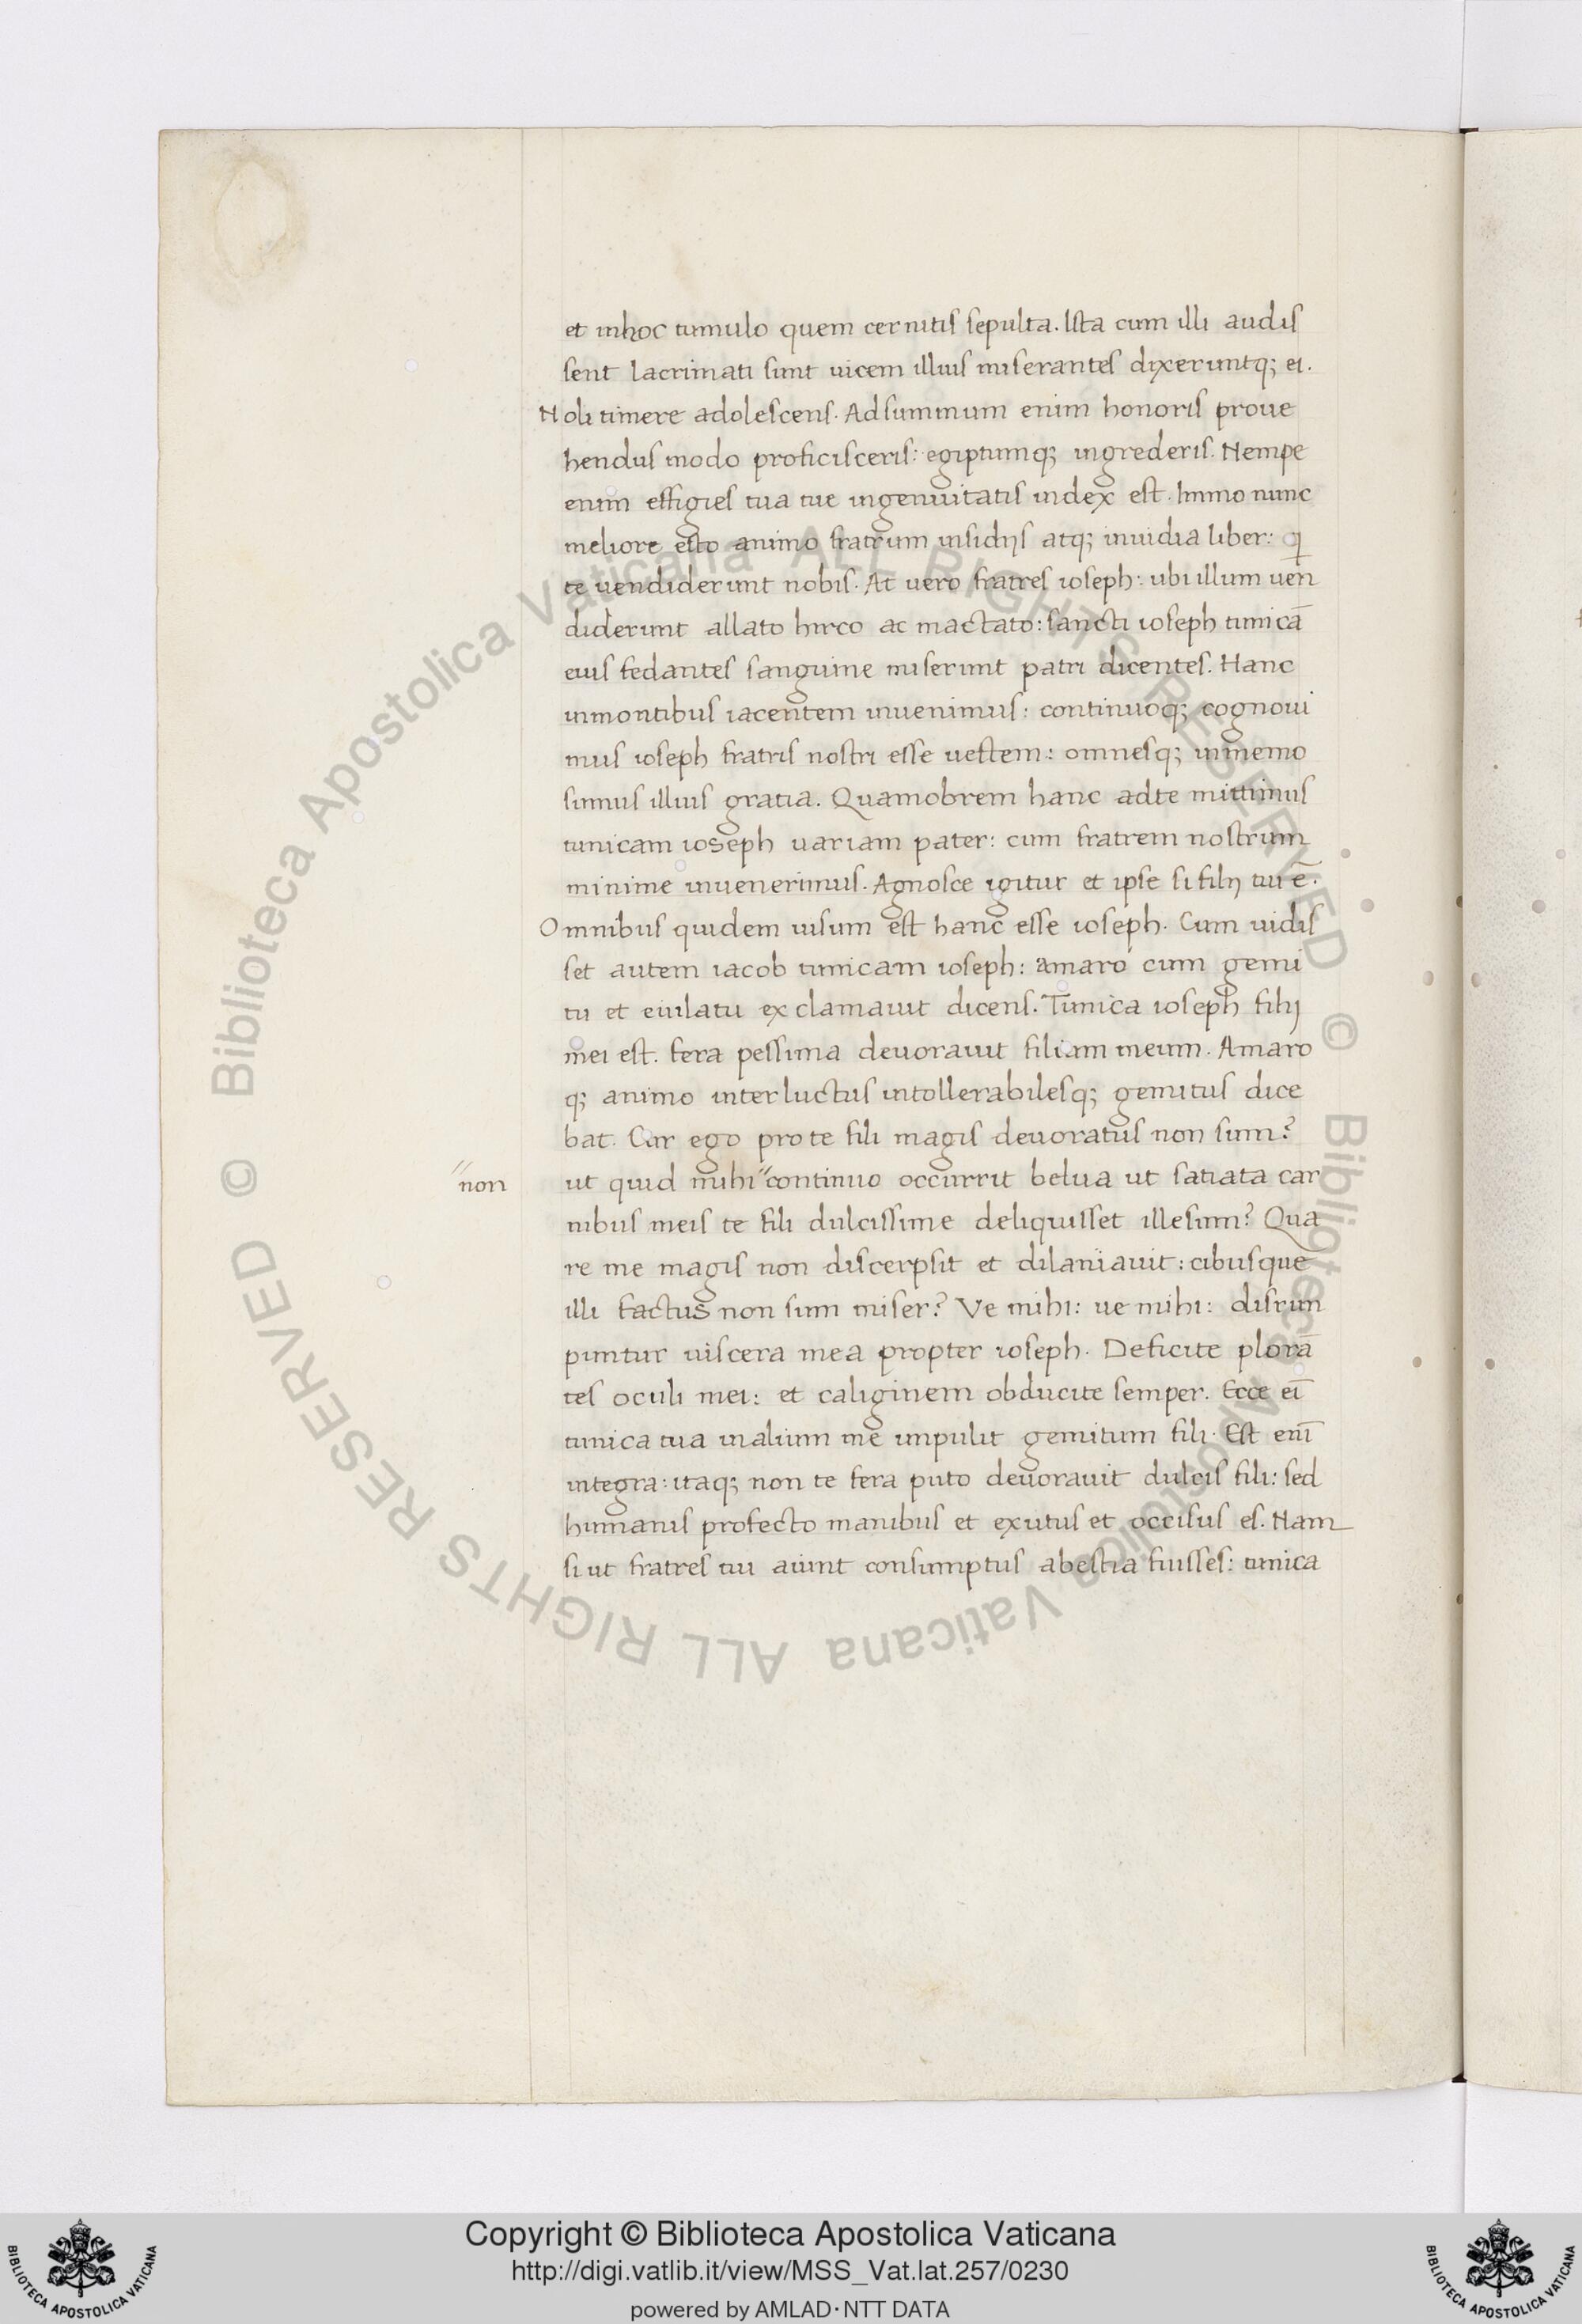 et inhoc tumulo quem cernitis sepulta. Ista cum illi audis
sent lacrimati sunt uicem illius miserantes dixeruntq; ei.
Noli timere adolescens. Adsummum enim honoris proue
hendus modo proficisceris: egiptumq; ingrederis. Nempe
enim effigies tua tue ingenuitatis index est. Immo nunc
meliore esto animo fratrum insidijs atq; inuidia liber: qi
te uendiderunt nobis. At uero fratres ioseph: ubi illum uen
diderunt allato hirco ac mactato: sancti ioseph tunicā
eius fedantes sanguine miserunt patri dicentes. Hanc
inmontibus iacentem inuenimus: continuoq; cognoui
mus ioseph fratris nostri esse uestem: omnesq; inmemo
sumus illius gratia. Quamobrem hanc adte mittimus
tunicam ioseph uariam pater: cum fratrem nostrum
minime inuenerimus. Agnosce igitur et ipse si filij tui ē.
Omnibus quidem uisum est hanc esse ioseph. Cum uidis
set autem iacob tunicam ioseph: amaro cum gemi
tu et eiulatu exclamauit dicens. Tunica ioseph filij
mei est. fera pessima deuorauit filiam meum. Amaro
q; animo interluctus intollerabilesq; gemitus dice
bat. Cur ego prote fili magis deuoratus non sum?
non
ut quid mihi "continuo occurrit belua ut satiata car
nibus meis te fili dulcissime deliquisset illesum? Qua
re me magis non discerpsit et dilaniauit: cibusque
illi factus non sum miser? Ve mihi: ue mihi: disrun
puntur uiscera mea propter ioseph. Deficite plorā
tes oculi mei: et caliginem obducite semper. Ecce eī
tunica tua inalium me impulit gemitum fili. Est enī
integra: itaq; non te fera puto deuorauit dulcis fili: sed
humanis profecto manibus et exutus et occisus es. Nam
si ut fratres tui aiunt consumptus abestia fuisses: tunica
© Biblioteca Apostolica Vaticana ALL RIGHTS RESERVED
© Biblioteca Apostolica Vaticana ALL RIGHTS RESERVED
Copyright © Biblioteca Apostolica Vaticana
http://digi.vatlib.it/view/MSS_Vat.lat.257/0230
powered by AMLAD·NTT DATA
BIBLIOTECA APOSTOLICA VATICANA
BIBLIOTECA APOSTOLICA VATICANA